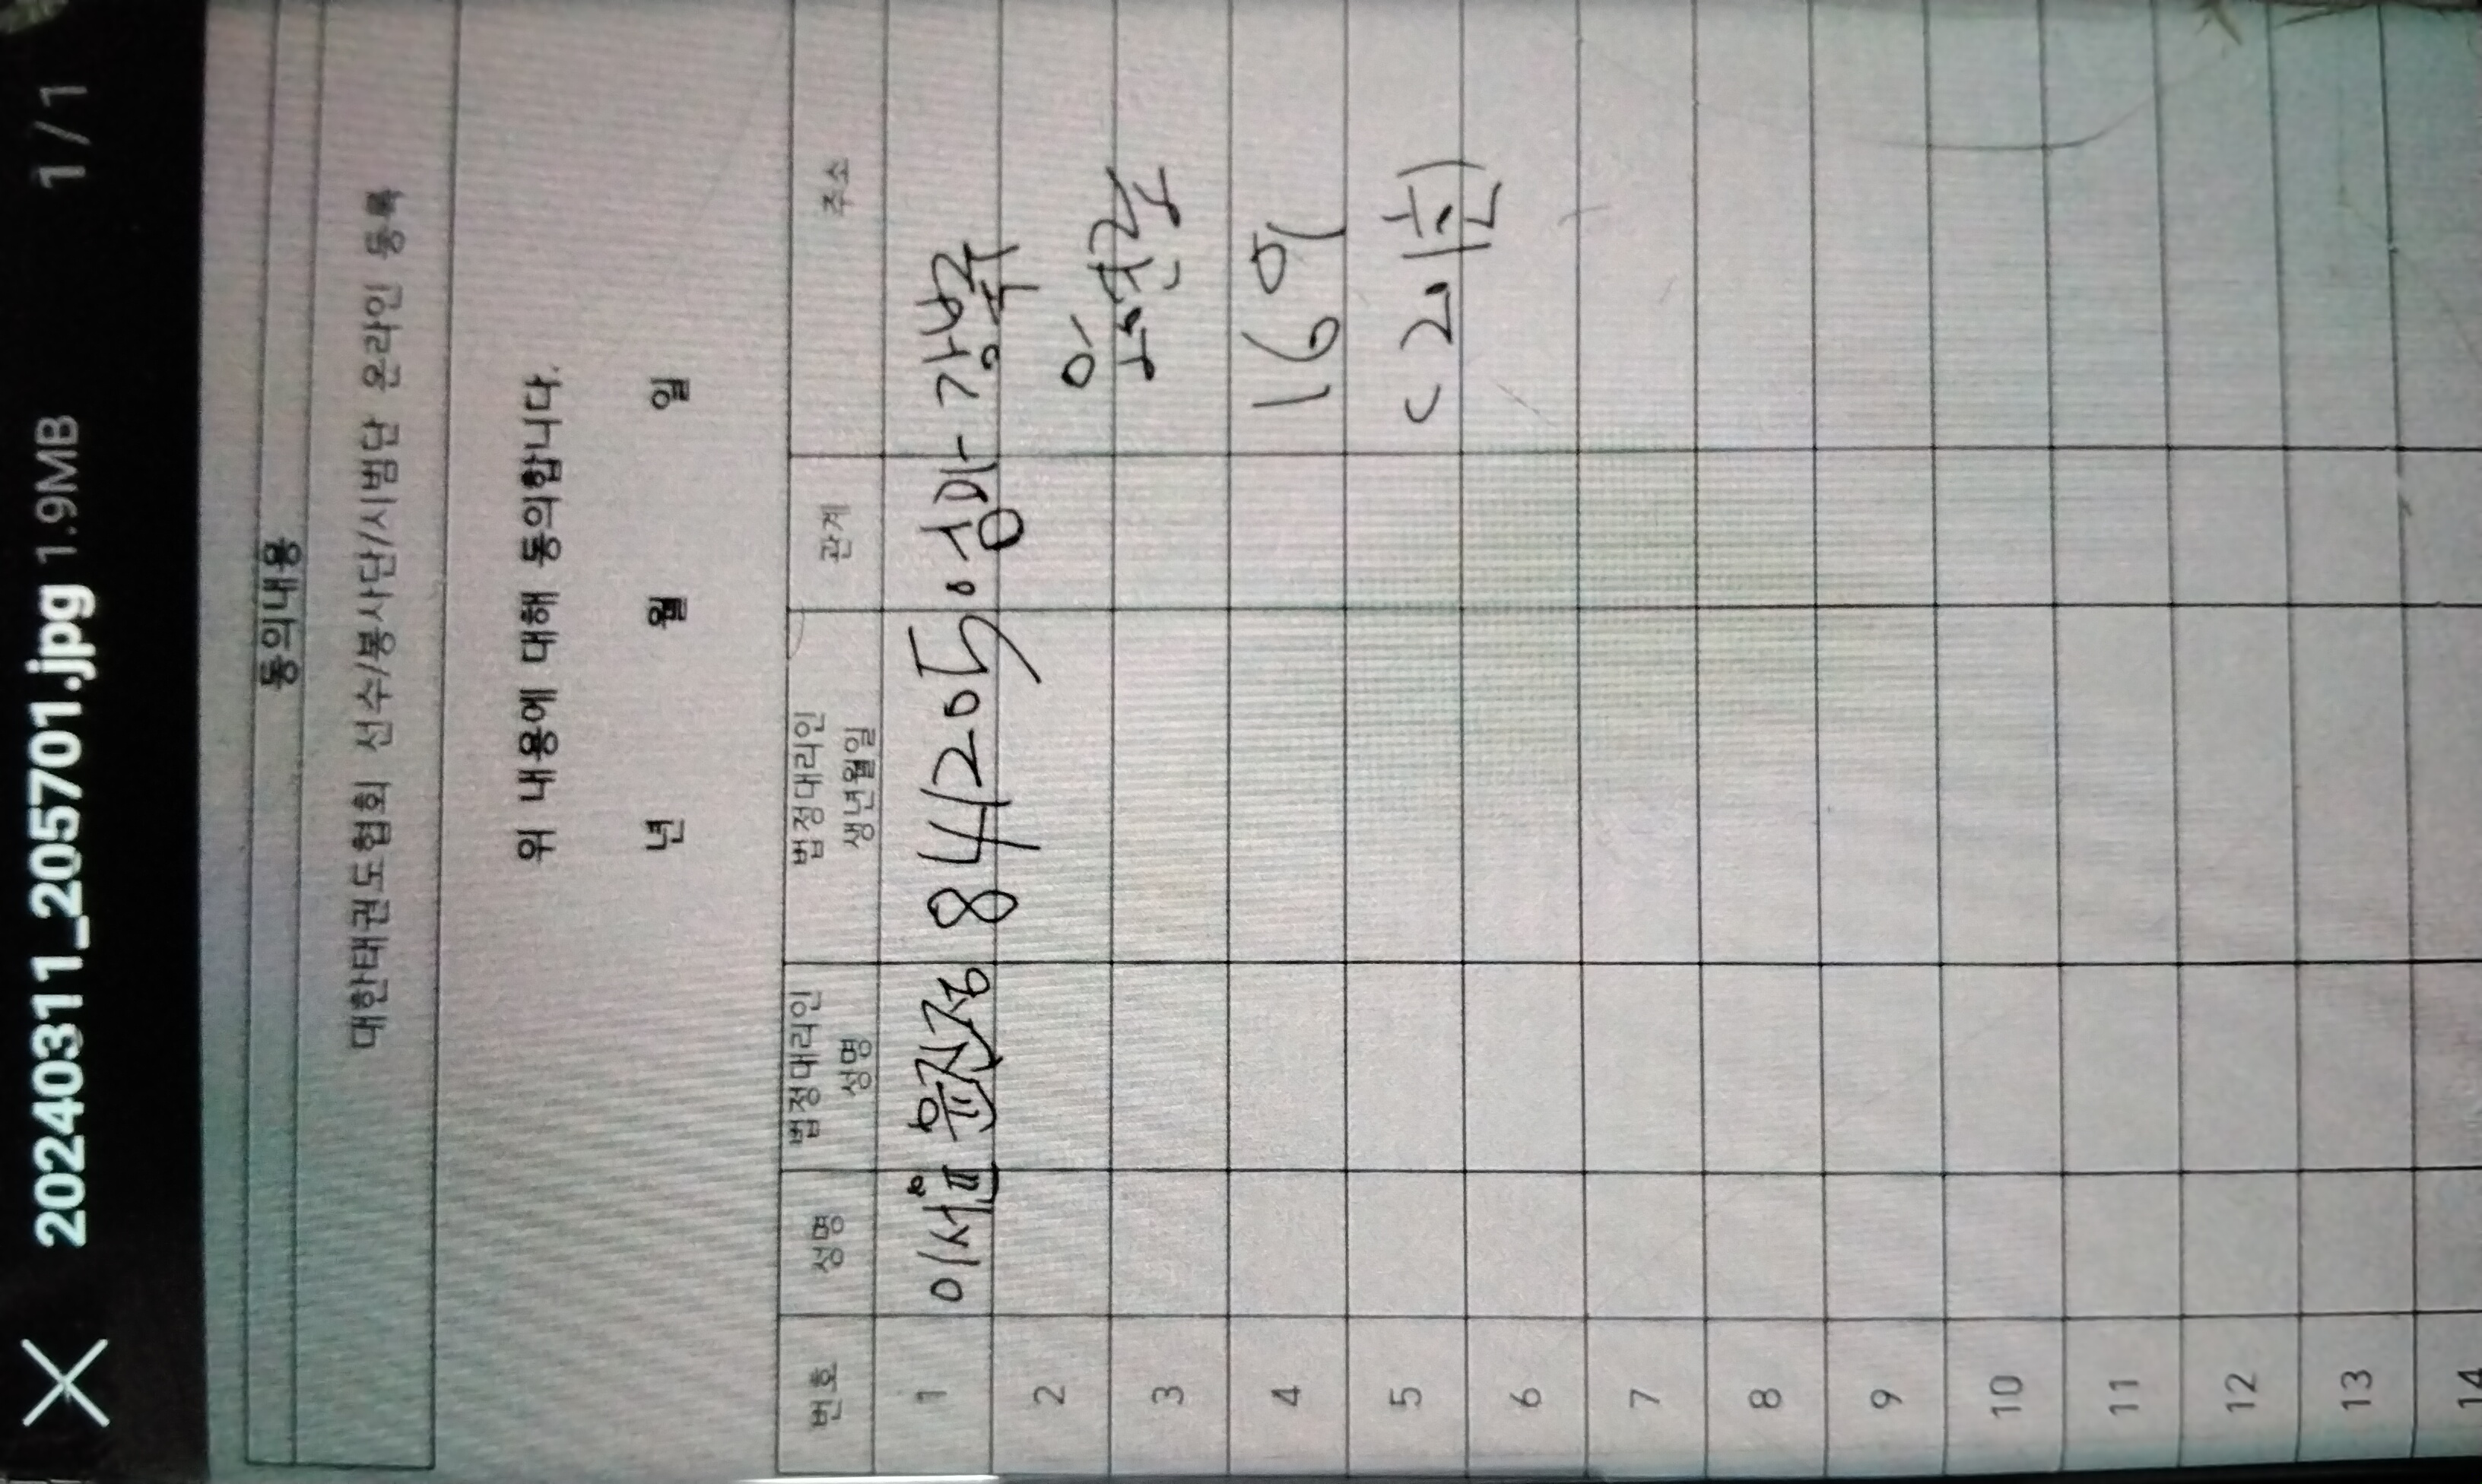 20240311_205701.jpg 1.9MB 1/1
동의내용
대한태권도협회 선수/봉사단/시범단 온라인 등록
위 내용에 대해 동의합니다.
년 월 일
번호 성명 법정대리인 성명 법정대리인 생년월일 관계 주소
1 이서윤 윤진정 841205 엄마 강북
2
3
4 16의
5
6
7
8
9
10
11
12
13
14